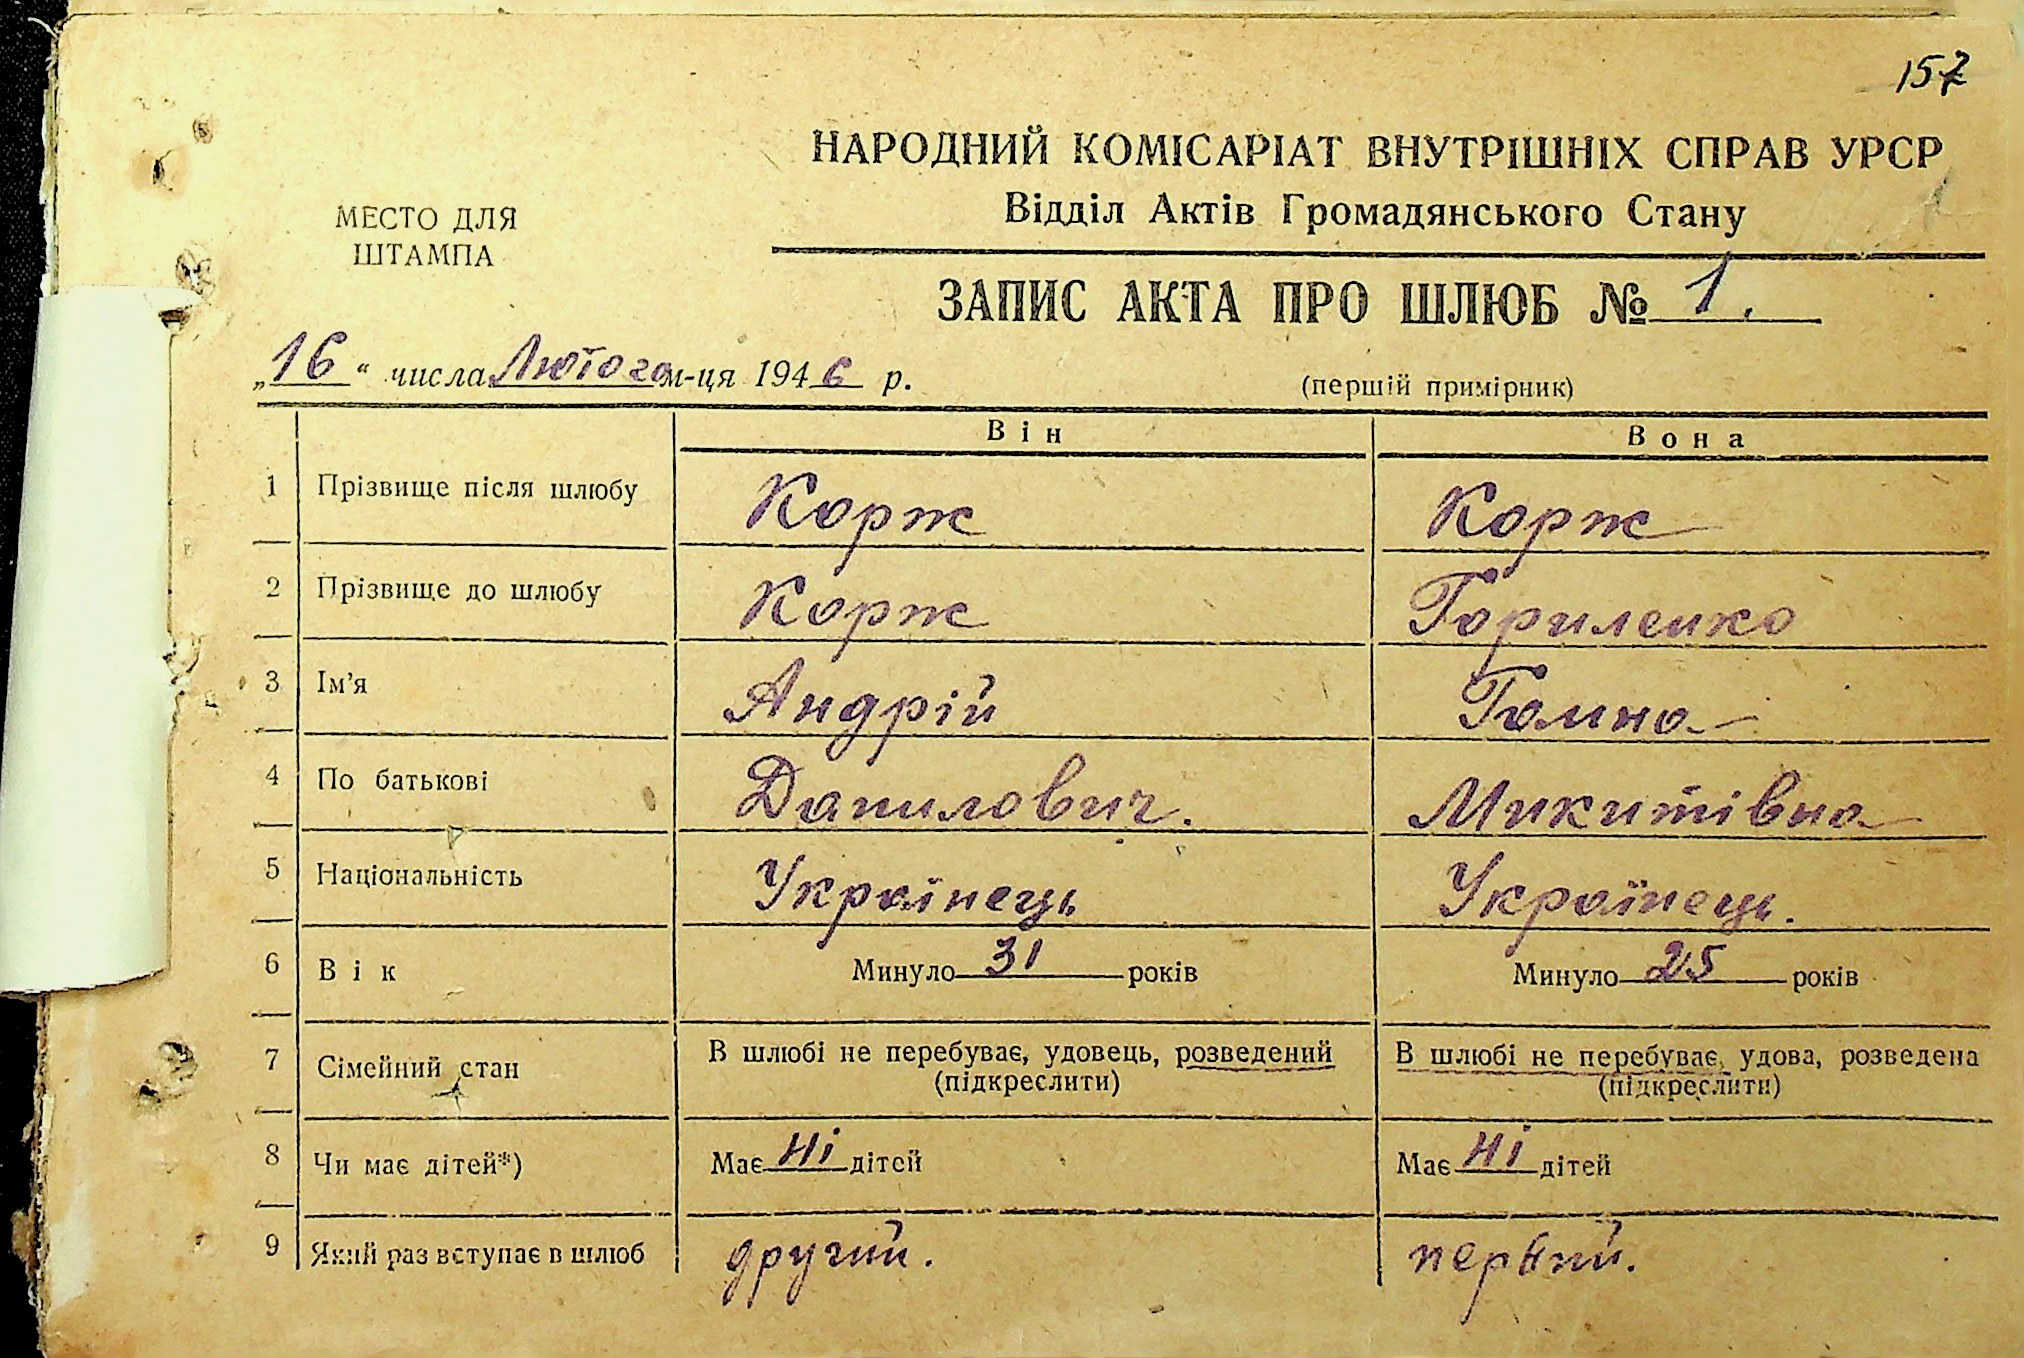 157
НАРОДНИЙ КОМІСАРІАТ ВНУТРІШНІХ СПРАВ УРСР
Відділ Актів Громадянського Стану
МЕСТО ДЛЯ
ШТАМПА
ЗАПИС АКТА ПРО ШЛЮБ № 1.
„16“ числа Лютого м-ця 1946 р.
(першій примірник)
Він Вона
1 Прізвище після шлюбу Корж Корж
2 Прізвище до шлюбу Корж Гориленко
3 Ім'я Андрій Галина
4 По батькові Данилович. Микитівна
5 Національність Українець Українець.
6 Вік Минуло 31 років Минуло 25 років
7 Сімейний стан В шлюбі не перебуває, удовець, розведений В шлюбі не перебуває, удова, розведена
(підкреслити) (підкреслити)
8 Чи має дітей*) Має Ні дітей Має Ні дітей
9 Який раз вступає в шлюб другий. первий.